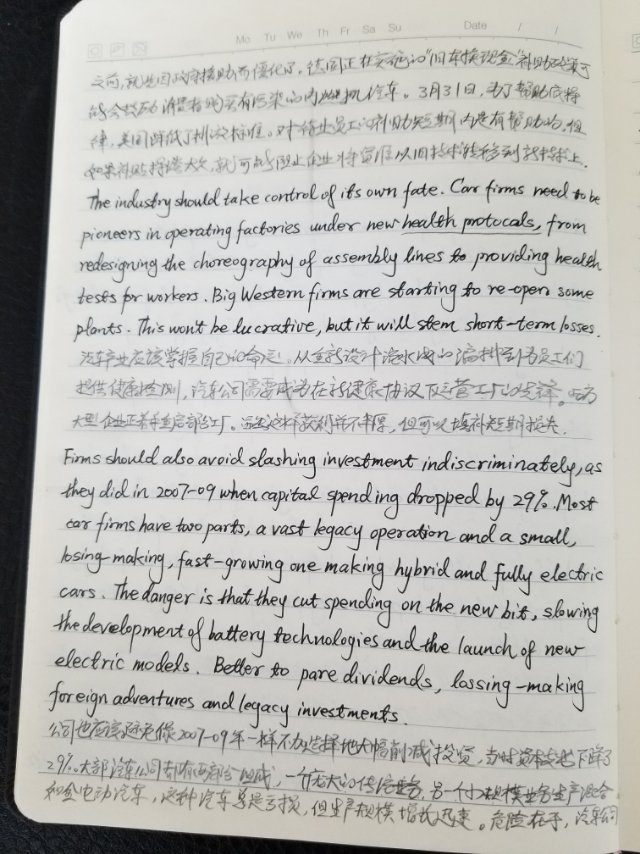 Mo Tu We Th Fr Sa Su Date / /
之前,就业因政府援助而僵化了。德国正在实施的"旧车换现金"补助政策可
能会鼓励消费者购买有污染的内燃机汽车。3月31日,为了帮助底特
律,美国降低了排放标准。对待业员工的补助短期内是有帮助的,但
如果补贴得塔大久,就可能阻止企业将资源从旧技术转移到新技术上.
The industry should take control of its own fate. Car firms need to be
pioneers in operating factories under new health protocals, from
redesigning the choreography of assembly lines to providing health
tests for workers. Big Western firms are starting to re-open some
plants. This won't be lucrative, but it will stem short-term losses.
汽车产业应该掌握自己的命运。从重新设计流水线的编排到为员工们
提供健康检测,汽车公司需要成为在新健康协议下运营工厂的先锋。西方
大型企业正着手重启部分工厂。虽然这样获利并不丰厚,但可以填补短期损失.
Firms should also avoid slashing investment indiscriminately, as
they did in 2007-09 when capital spending dropped by 29%. Most
car firms have two parts, a vast legacy operation and a small,
losing-making, fast-growing one making hybrid and fully electric
cars. The danger is that they cut spending on the new bit, slowing
the development of battery technologies and the launch of new
electric models. Better to pare dividends, lossing-making
foreign adventures and legacy investments.
公司也应该避免像2007-09年一样不加选择地大幅削减投资,当时资本支出下降了
29%。大部汽车公司都有两部分组成,一个庞大的传统业务,另一个小规模业务生产混合
和全电动汽车,这种汽车总是亏损,但生产规模增长迅速。危险在于,汽车公司